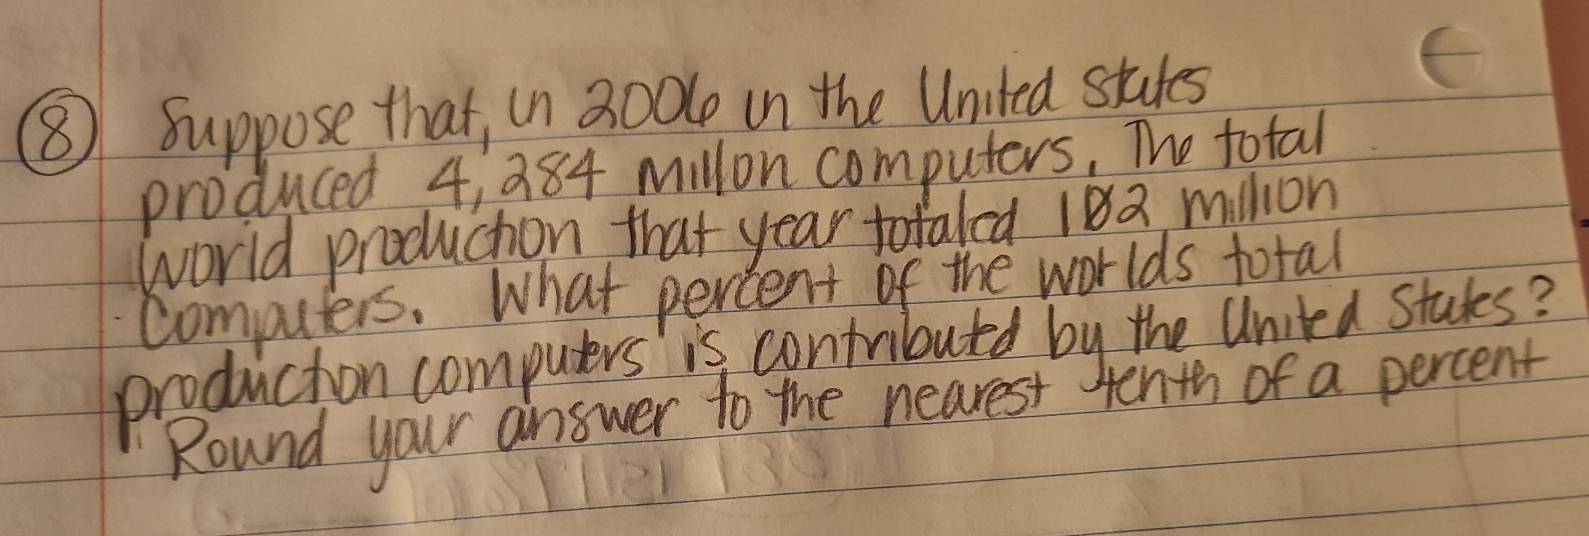 ⑧ Suppose that, in 2006 in the United States
produced 4,284 millon computers. The total
World production that year totaled 182 million
Computers. What percent of the worlds total
production computers is contributed by the United States?
Round your answer to the nearest tenth of a percent